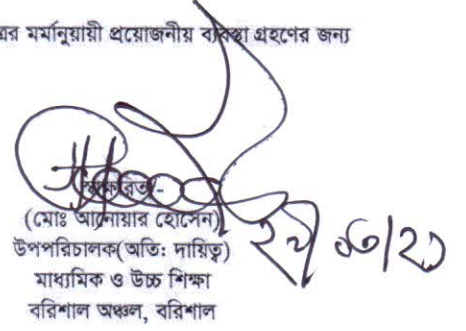 মর্মানুযায়ী প্রয়োজনীয় ব্যবস্থা গ্রহণের জন্য
স্বাক্ষরিত/-
(মোঃ আনোয়ার হোসেন)
উপপরিচালক(অতি: দায়িত্ব)
মাধ্যমিক ও উচ্চ শিক্ষা
বরিশাল অঞ্চল, বরিশাল